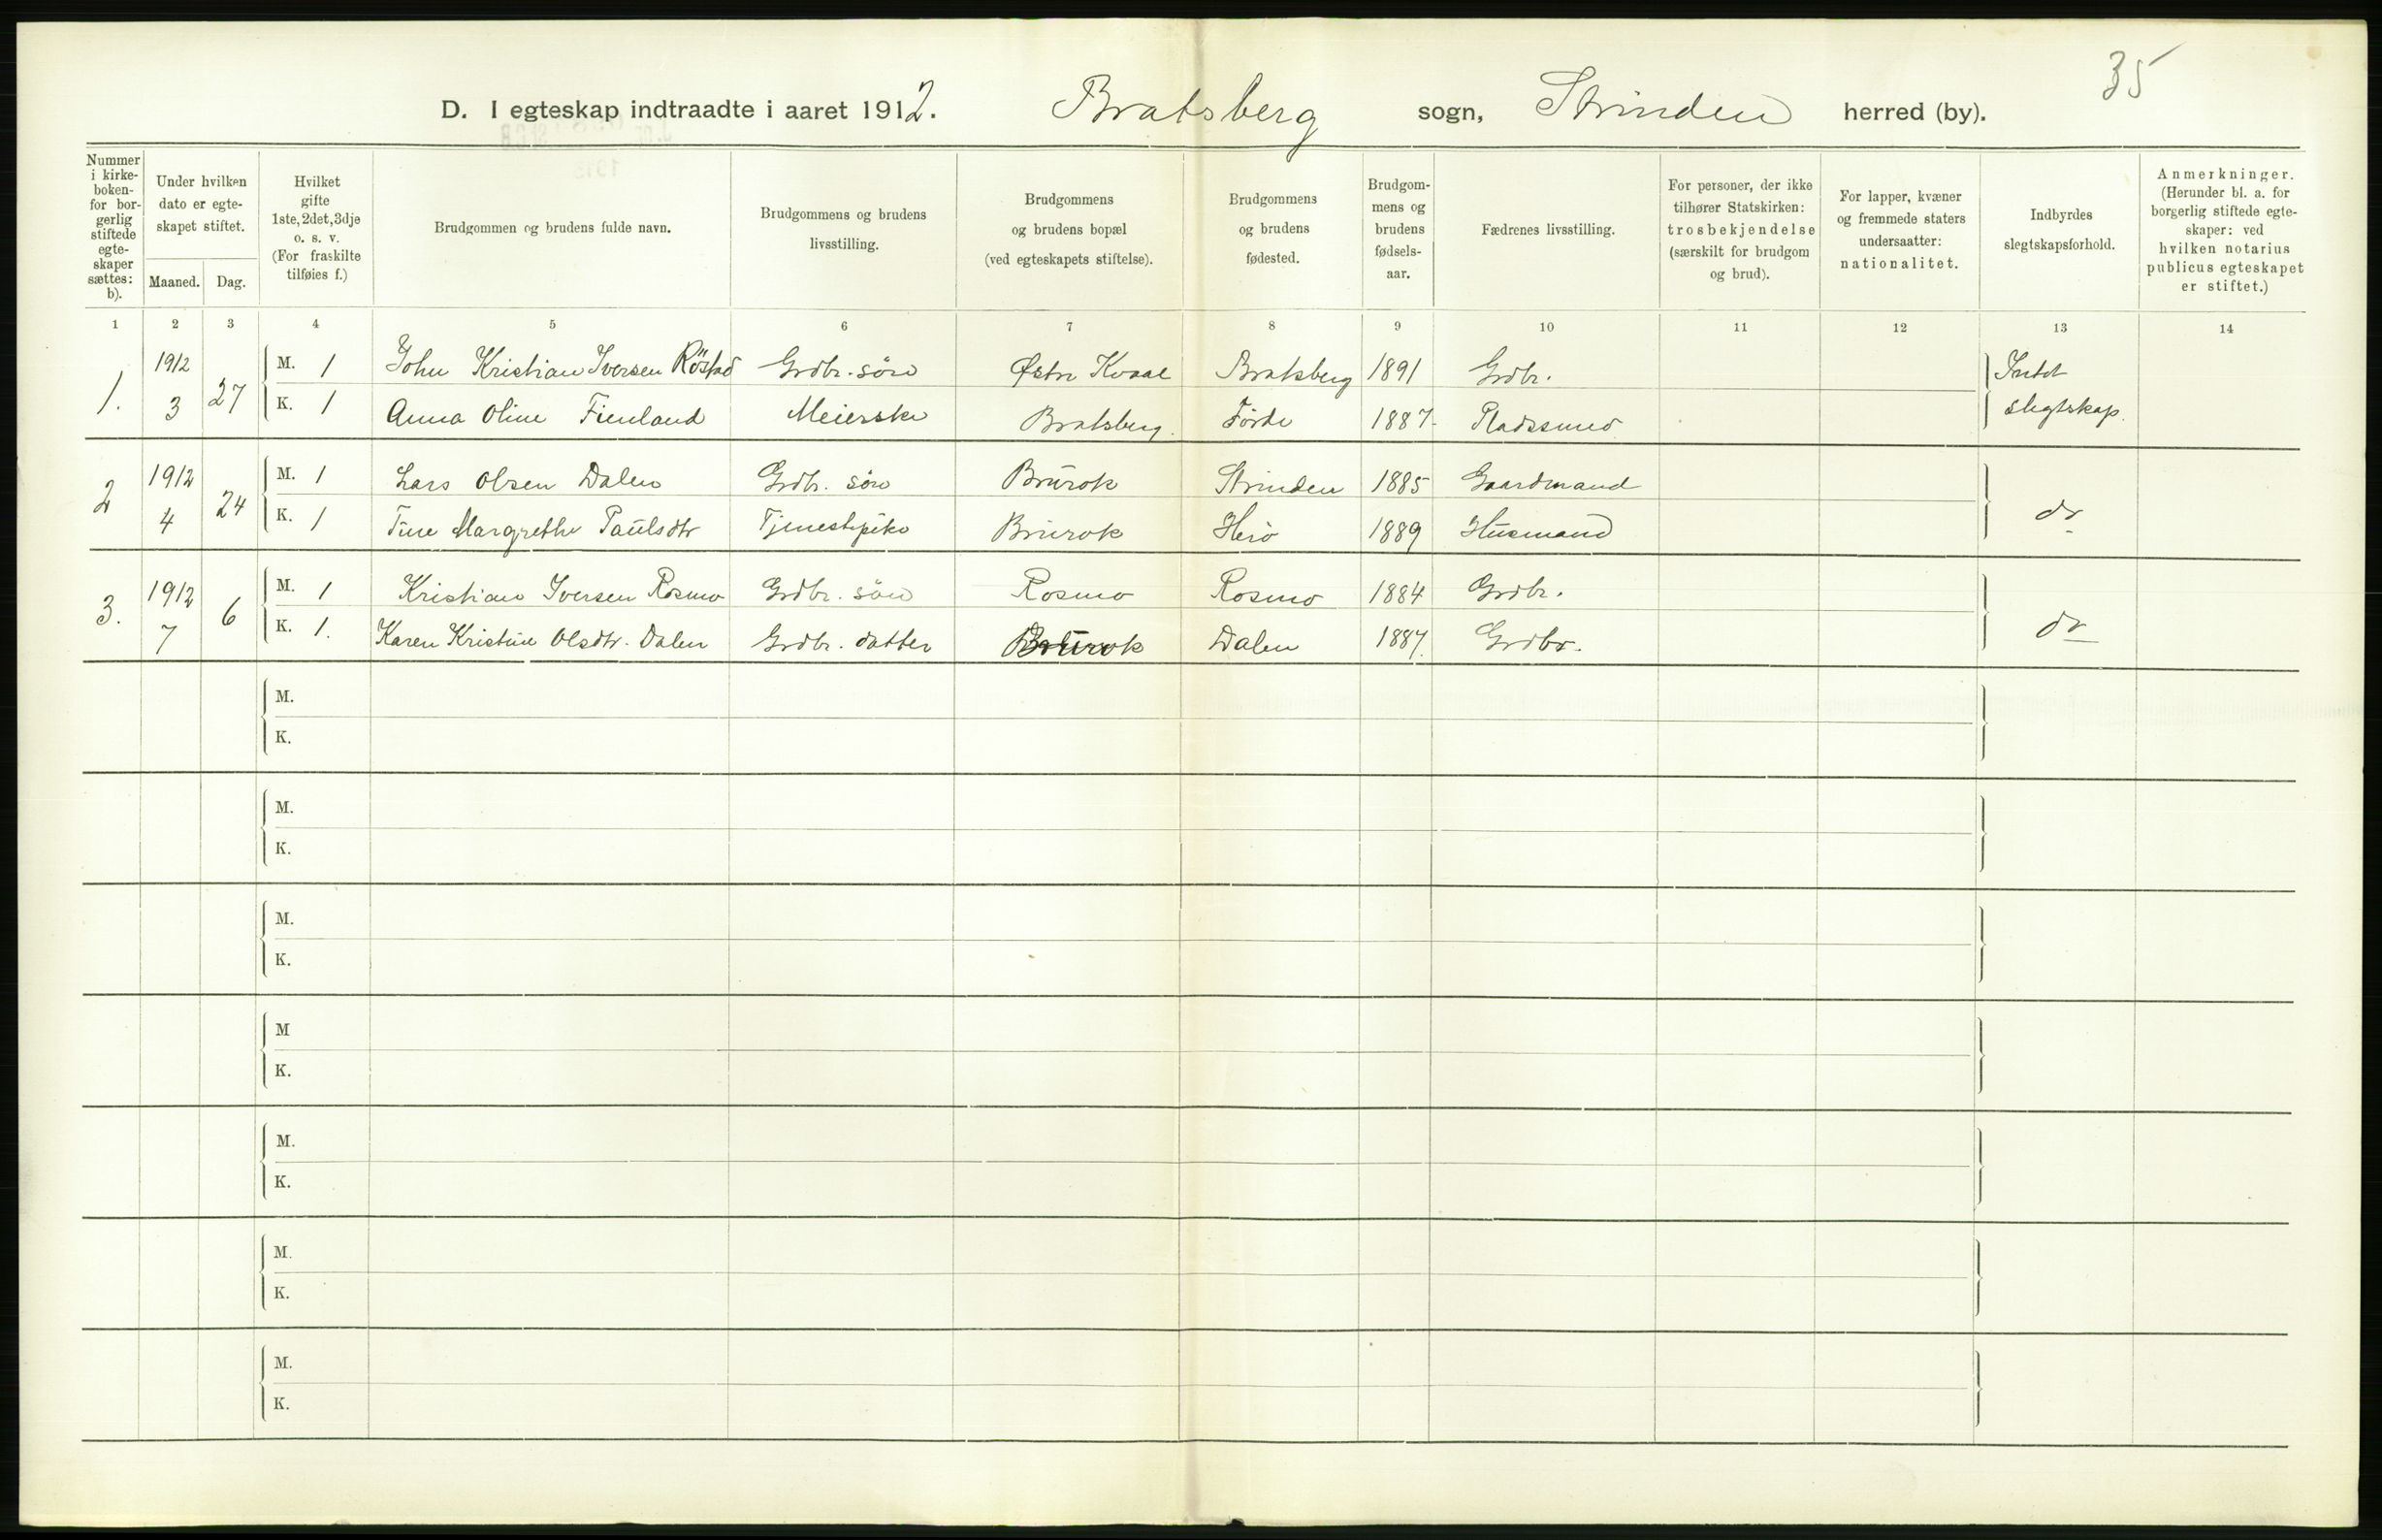 35
D. I egteskap indtraadte i aaret 1912. Bratsberg sogn, Strinden herred (by).
Nummer i kirke-boken- for bor-gerlig stiftede egte-skaper sættes: b).
Under hvilken dato er egte-skapet stiftet.
Maaned. Dag.
Hvilket gifte 1ste, 2det, 3dje o. s. v. (For fraskilte tilføies f.)
Brudgommen og brudens fulde navn.
Brudgommens og brudens livsstilling.
Brudgommens og brudens bopæl (ved egteskapets stiftelse).
Brudgommens og brudens fødested.
Brudgom-mens og brudens fødsels-aar.
Fædrenes livsstilling.
For personer, der ikke tilhører Statskirken: trosbekjendelse (særskilt for brudgom og brud).
For lapper, kvæner og fremmede staters undersaatter: nationalitet.
Indbyrdes slegtskapsforhold.
Anmerkninger. (Herunder bl. a. for borgerlig stiftede egte-skaper: ved hvilken notarius publicus egteskapet er stiftet.)
1 2 3 4 5 6 7 8 9 10 11 12 13 14
1. 1912 3 27
M. 1 John Kristian Iversen Röstad Grdbr. søn Østre Kvaal Bratsberg 1891 Grdbr. Intet
K. 1 Anna Oline Fienland Meierske Bratsberg. Førde 1887. Pladssmed slegtskap.
2 1912 4 24
M. 1 Lars Olsen Dalen Grdbr. søn Brurok Strinden 1885 Gaardmand
K. 1 Tine Margrethe Paulsdtr Tjenestepike Brurok Herö 1889 Husmand do
3. 1912 7 6
M. 1 Kristian Iversen Rosmo Grdbr. søn Rosmo Rosmo 1884 Grdbr.
K. 1. Karen Kristine Olsdtr. Dalen Grdbr. datter Brurok Dalen 1887. Grdbr. do
M.
K.
M.
K.
M.
K.
M
K.
M.
K.
M.
K.
M.
K.